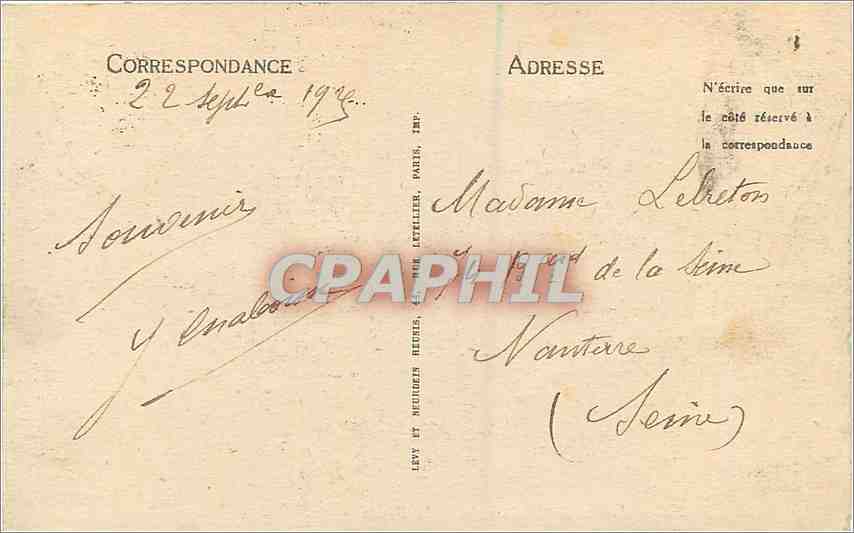 CORRESPONDANCE
22 Sept
Souvenir
LÉVY ET NEURDEIN RÉUNIS, RUE LETELLIER, PARIS, IMP.
ADRESSE
N'écrire que sur
le côté réservé à
la correspondance
Madame Lebreton
de la Seine
Nanterre
(Seine)
CPAPHIL